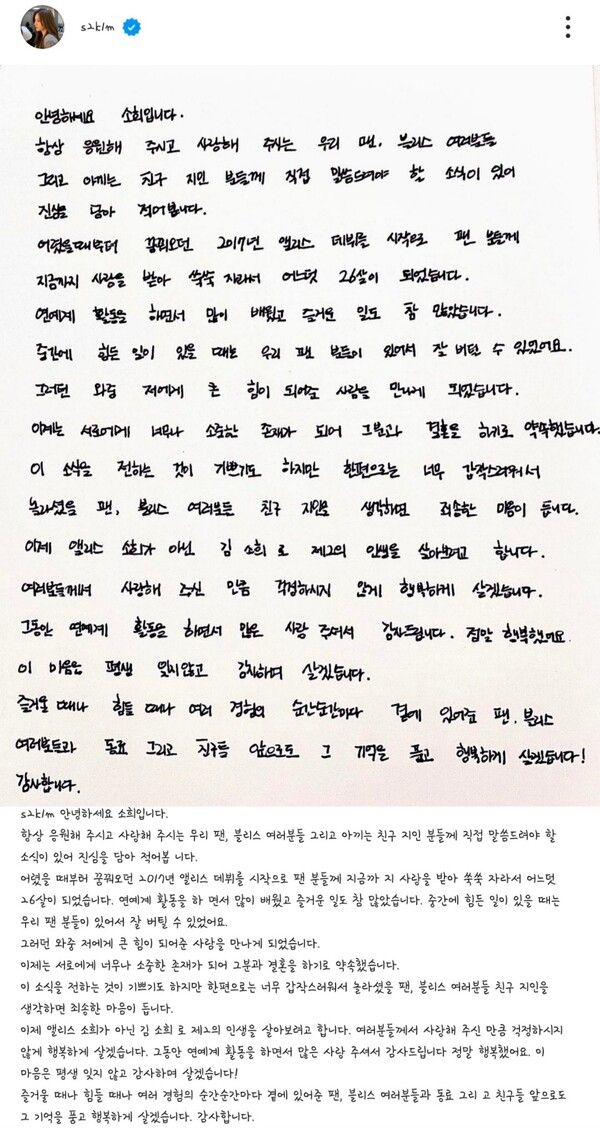 s2k1m
안녕하세요 소희입니다.
항상 응원해 주시고 사랑해 주시는 우리 팬, 블리스 여러분들
그리고 아끼는 친구 지인 분들께 직접 말씀드려야 할 소식이 있어
진심을 담아 적어봅니다.
어렸을때부터 꿈꿔오던 2017년 앨리스 데뷔를 시작으로 팬 분들께
지금까지 사랑을 받아 쑥쑥 자라서 어느덧 26살이 되었습니다.
연예계 활동을 하면서 많이 배웠고 즐거운 일도 참 많았습니다.
중간에 힘든 일이 있을 때는 우리 팬 분들이 있어서 잘 버틸 수 있었어요.
그러던 와중 저에게 큰 힘이 되어준 사람을 만나게 되었습니다.
이제는 서로에게 너무나 소중한 존재가 되어 그분과 결혼을 하기로 약속했습니다.
이 소식을 전하는 것이 기쁘기도 하지만 한편으로는 너무 갑작스러워서
놀라셨을 팬, 블리스 여러분들 친구 지인을 생각하면 죄송한 마음이 듭니다.
이제 앨리스 소희가 아닌 김 소희 로 제2의 인생을 살아보려고 합니다.
여러분들께서 사랑해 주신 만큼 걱정하시지 않게 행복하게 살겠습니다.
그동안 연예계 활동을 하면서 많은 사랑 주셔서 감사드립니다. 정말 행복했어요
이 마음은 평생 잊지않고 감사하며 살겠습니다.
즐거울 때나 힘들 때나 여러 경험의 순간순간마다 곁에 있어준 팬, 블리스
여러분들과 동료 그리고 친구들 앞으로도 그 기억을 품고 행복하게 살겠습니다!
감사합니다.
s2k1m 안녕하세요 소희입니다.
항상 응원해 주시고 사랑해 주시는 우리 팬, 블리스 여러분들 그리고 아끼는 친구 지인 분들께 직접 말씀드려야 할
소식이 있어 진심을 담아 적어봅 니다.
어렸을 때부터 꿈꿔오던 2017년 앨리스 데뷔를 시작으로 팬 분들께 지금까 지 사랑을 받아 쑥쑥 자라서 어느덧
26살이 되었습니다. 연예계 활동을 하 면서 많이 배웠고 즐거운 일도 참 많았습니다. 중간에 힘든 일이 있을 때는
우리 팬 분들이 있어서 잘 버틸 수 있었어요.
그러던 와중 저에게 큰 힘이 되어준 사람을 만나게 되었습니다.
이제는 서로에게 너무나 소중한 존재가 되어 그분과 결혼을 하기로 약속했습니다.
이 소식을 전하는 것이 기쁘기도 하지만 한편으로는 너무 갑작스러워서 놀라셨을 팬, 블리스 여러분들 친구 지인을
생각하면 죄송한 마음이 듭니다.
이제 앨리스 소희가 아닌 김 소희 로 제2의 인생을 살아보려고 합니다. 여러분들께서 사랑해 주신 만큼 걱정하시지
않게 행복하게 살겠습니다. 그동안 연예계 활동을 하면서 많은 사랑 주셔서 감사드립니다 정말 행복했어요. 이
마음은 평생 잊지 않고 감사하며 살겠습니다!
즐거울 때나 힘들 때나 여러 경험의 순간순간마다 곁에 있어준 팬, 블리스 여러분들과 동료 그리 고 친구들 앞으로도
그 기억을 품고 행복하게 살겠습니다. 감사합니다.